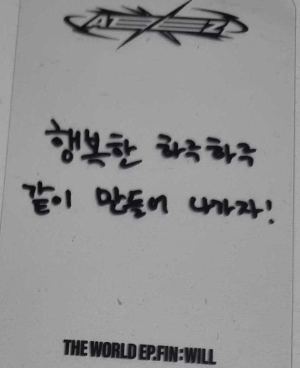 ATEEZ
행복한 하루하루
같이 만들어 나가자!
THE WORLD EP.FIN:WILL